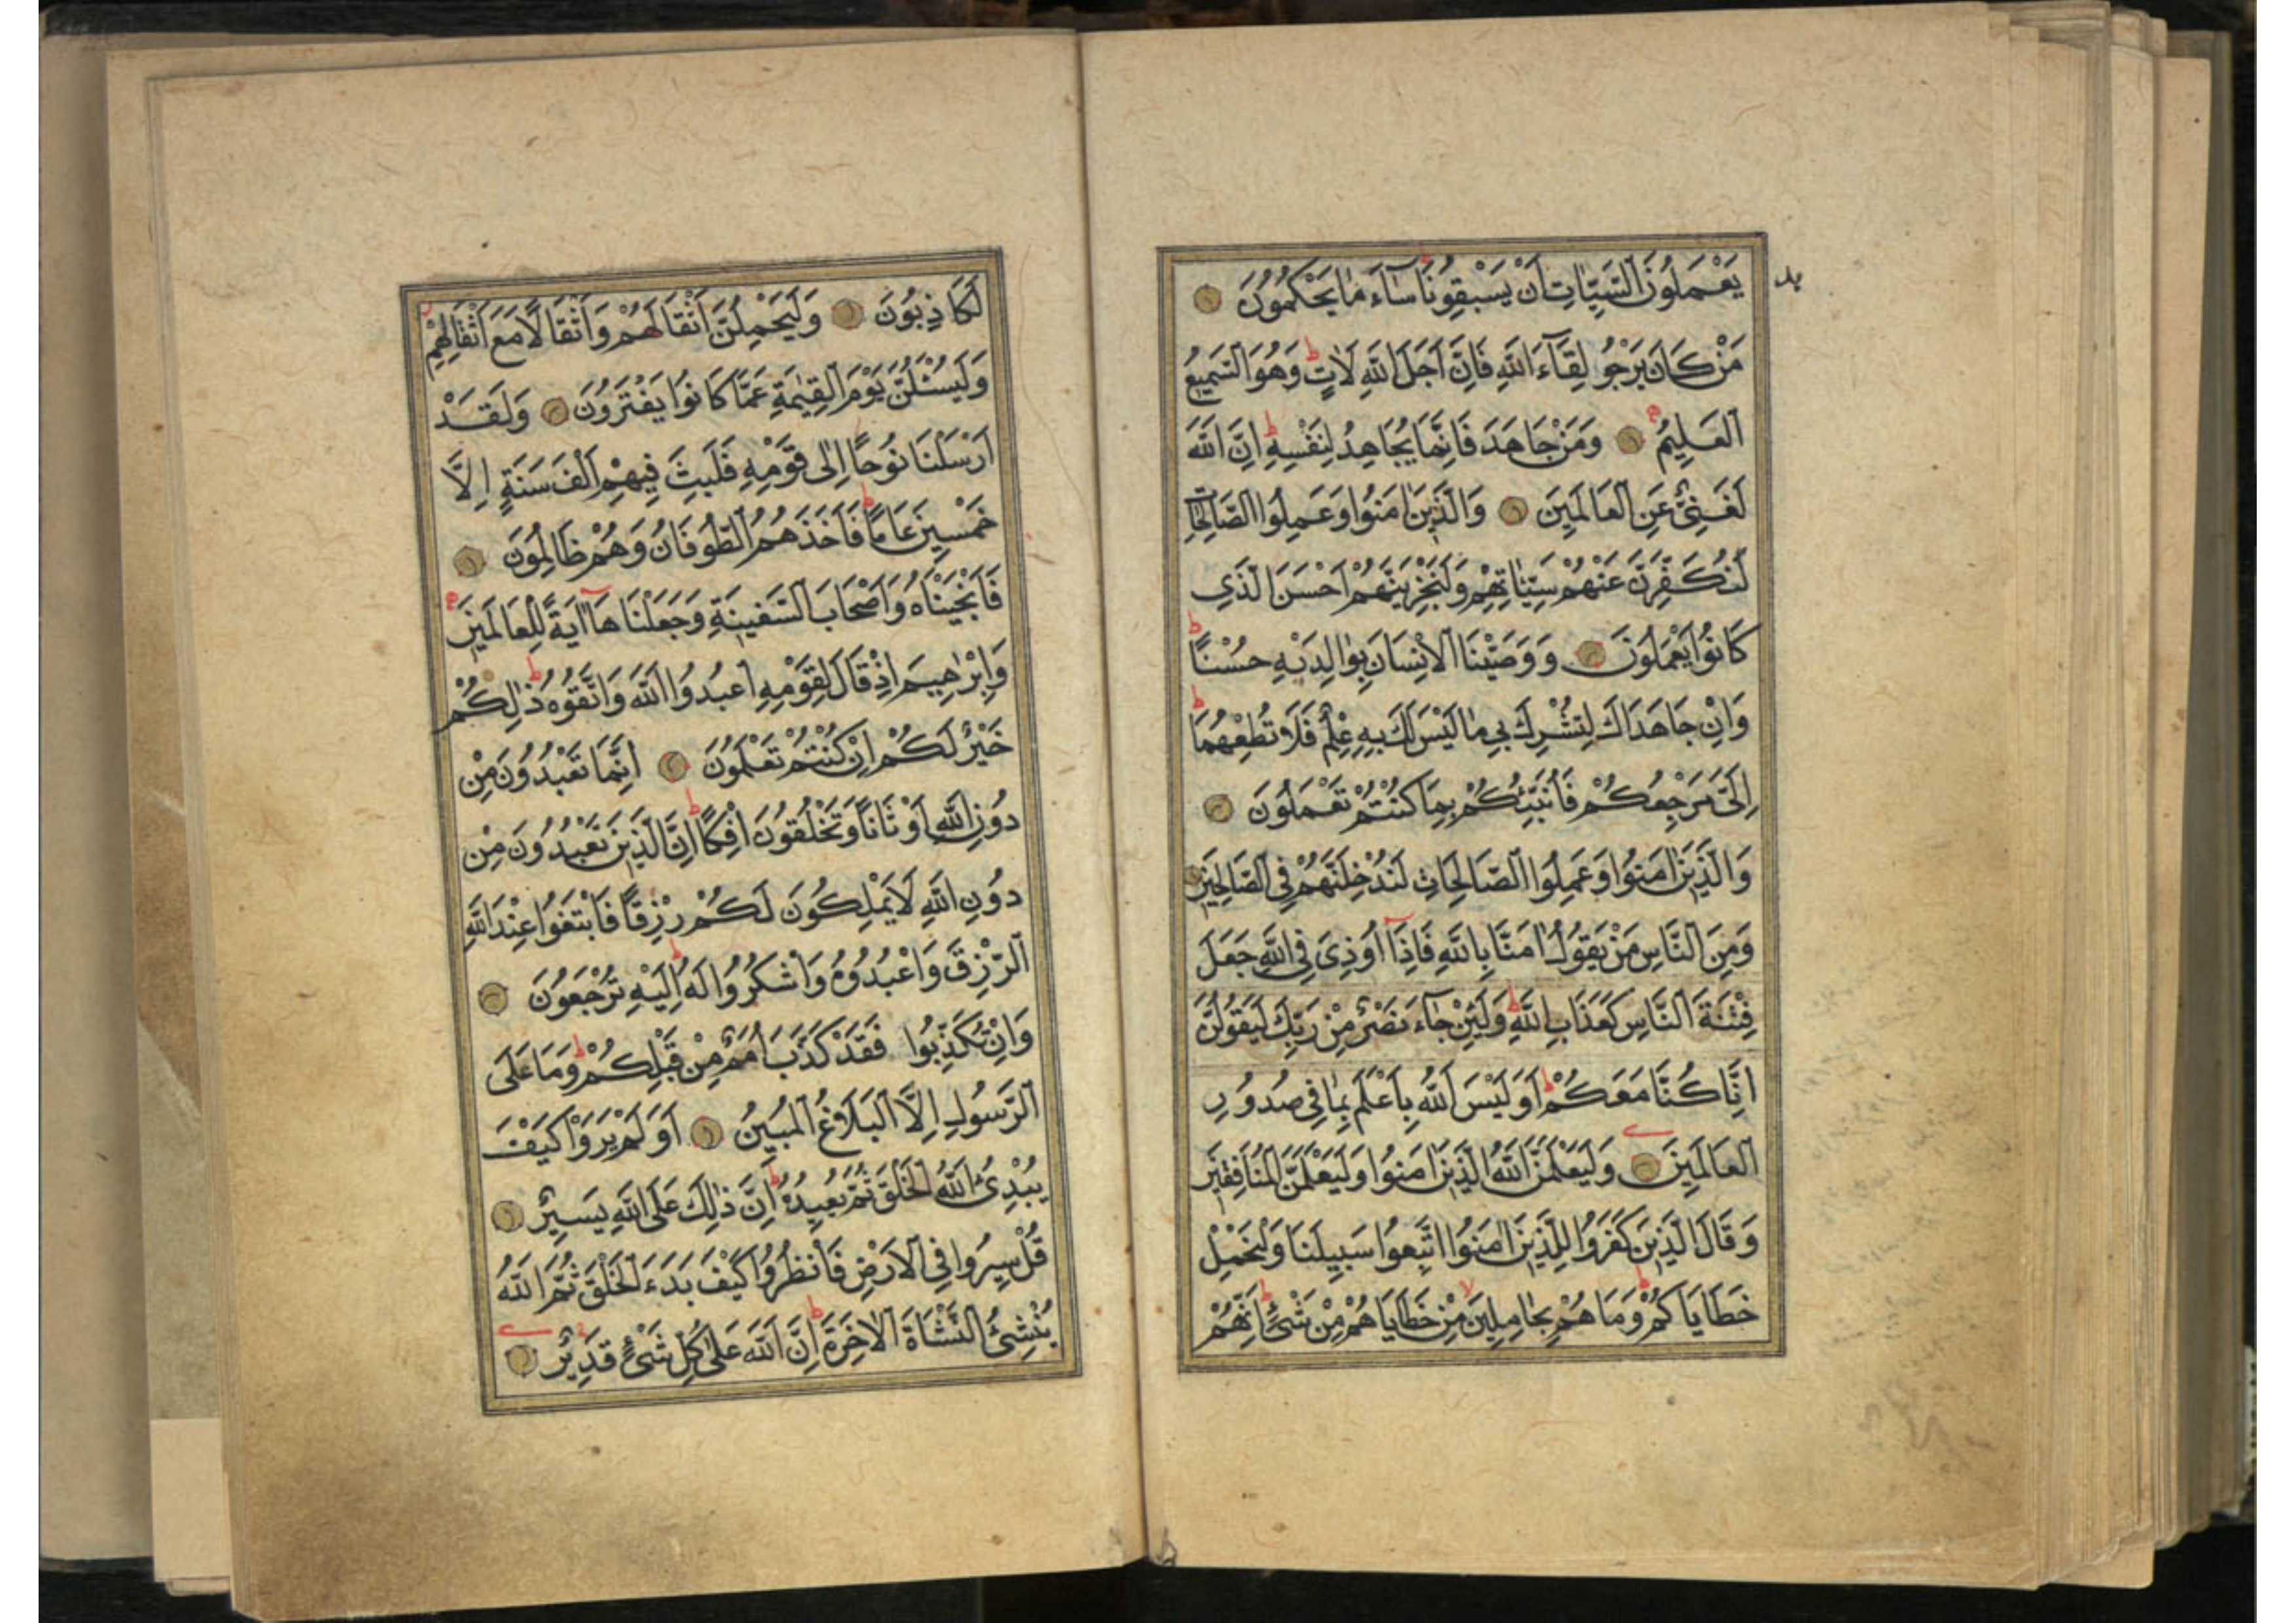 يَعْمَلُونَ السَّيِّاٰتِ اَنْ يَسْبِقُونَا سَٓاءَ مَا يَحْكُمُونَ
مَنْ كَانَ يَرْجُو لِقَٓاءَ اللّٰهِ فَاِنَّ اَجَلَ اللّٰهِ لَاٰتٍ ط وَهُوَ السَّمِيعُ
الْعَلِيمُ وَمَنْ جَاهَدَ فَاِنَّمَا يُجَاهِدُ لِنَفْسِهِ ط اِنَّ اللّٰهَ
لَغَنِيٌّ عَنِ الْعَالَمِينَ وَالَّذِينَ اٰمَنُوا وَعَمِلُوا الصَّالِحَاتِ
لَنُكَفِّرَنَّ عَنْهُمْ سَيِّئَاتِهِمْ وَلَنَجْزِيَنَّهُمْ اَحْسَنَ الَّذِي
كَانُوا يَعْمَلُونَ وَوَصَّيْنَا الْاِنْسَانَ بِوَالِدَيْهِ حُسْنًا ط
وَاِنْ جَاهَدَاكَ لِتُشْرِكَ بِي مَا لَيْسَ لَكَ بِهِ عِلْمٌ فَلَا تُطِعْهُمَا ط
اِلَيَّ مَرْجِعُكُمْ فَاُنَبِّئُكُمْ بِمَا كُنْتُمْ تَعْمَلُونَ
وَالَّذِينَ اٰمَنُوا وَعَمِلُوا الصَّالِحَاتِ لَنُدْخِلَنَّهُمْ فِي الصَّالِحِينَ
وَمِنَ النَّاسِ مَنْ يَقُولُ اٰمَنَّا بِاللّٰهِ فَاِذَٓا اُوذِيَ فِي اللّٰهِ جَعَلَ
فِتْنَةَ النَّاسِ كَعَذَابِ اللّٰهِ ط وَلَئِنْ جَٓاءَ نَصْرٌ مِنْ رَبِّكَ لَيَقُولُنَّ
اِنَّا كُنَّا مَعَكُمْ ط اَوَلَيْسَ اللّٰهُ بِاَعْلَمَ بِمَا فِي صُدُورِ
الْعَالَمِينَ وَلَيَعْلَمَنَّ اللّٰهُ الَّذِينَ اٰمَنُوا وَلَيَعْلَمَنَّ الْمُنَافِقِينَ
وَقَالَ الَّذِينَ كَفَرُوا لِلَّذِينَ اٰمَنُوا اتَّبِعُوا سَبِيلَنَا وَلْنَحْمِلْ
خَطَايَاكُمْ ط وَمَا هُمْ بِحَامِلِينَ مِنْ خَطَايَاهُمْ مِنْ شَيْءٍ ط اِنَّهُمْ
لَكَاذِبُونَ وَلَيَحْمِلُنَّ اَثْقَالَهُمْ وَاَثْقَالًا مَعَ اَثْقَالِهِمْ
وَلَيُسْئَلُنَّ يَوْمَ الْقِيٰمَةِ عَمَّا كَانُوا يَفْتَرُونَ وَلَقَدْ
اَرْسَلْنَا نُوحًا اِلٰى قَوْمِهِ فَلَبِثَ فِيهِمْ اَلْفَ سَنَةٍ اِلَّا
خَمْسِينَ عَامًا ط فَاَخَذَهُمُ الطُّوفَانُ وَهُمْ ظَالِمُونَ
فَاَنْجَيْنَاهُ وَاَصْحَابَ السَّفِينَةِ وَجَعَلْنَاهَٓا اٰيَةً لِلْعَالَمِينَ
وَاِبْرٰهِيمَ اِذْ قَالَ لِقَوْمِهِ اعْبُدُوا اللّٰهَ وَاتَّقُوهُ ط ذٰلِكُمْ
خَيْرٌ لَكُمْ اِنْ كُنْتُمْ تَعْلَمُونَ اِنَّمَا تَعْبُدُونَ مِنْ
دُونِ اللّٰهِ اَوْثَانًا وَتَخْلُقُونَ اِفْكًا ط اِنَّ الَّذِينَ تَعْبُدُونَ مِنْ
دُونِ اللّٰهِ لَا يَمْلِكُونَ لَكُمْ رِزْقًا فَابْتَغُوا عِنْدَ اللّٰهِ
الرِّزْقَ وَاعْبُدُوهُ وَاشْكُرُوا لَهُ ط اِلَيْهِ تُرْجَعُونَ
وَاِنْ تُكَذِّبُوا فَقَدْ كَذَّبَ اُمَمٌ مِنْ قَبْلِكُمْ ط وَمَا عَلَى
الرَّسُولِ اِلَّا الْبَلَاغُ الْمُبِينُ اَوَلَمْ يَرَوْا كَيْفَ
يُبْدِئُ اللّٰهُ الْخَلْقَ ثُمَّ يُعِيدُهُ ط اِنَّ ذٰلِكَ عَلَى اللّٰهِ يَسِيرٌ
قُلْ سِيرُوا فِي الْاَرْضِ فَانْظُرُوا كَيْفَ بَدَءَ الْخَلْقَ ثُمَّ اللّٰهُ
يُنْشِئُ النَّشْاَةَ الْاٰخِرَةَ ط اِنَّ اللّٰهَ عَلٰى كُلِّ شَيْءٍ قَدِيرٌ